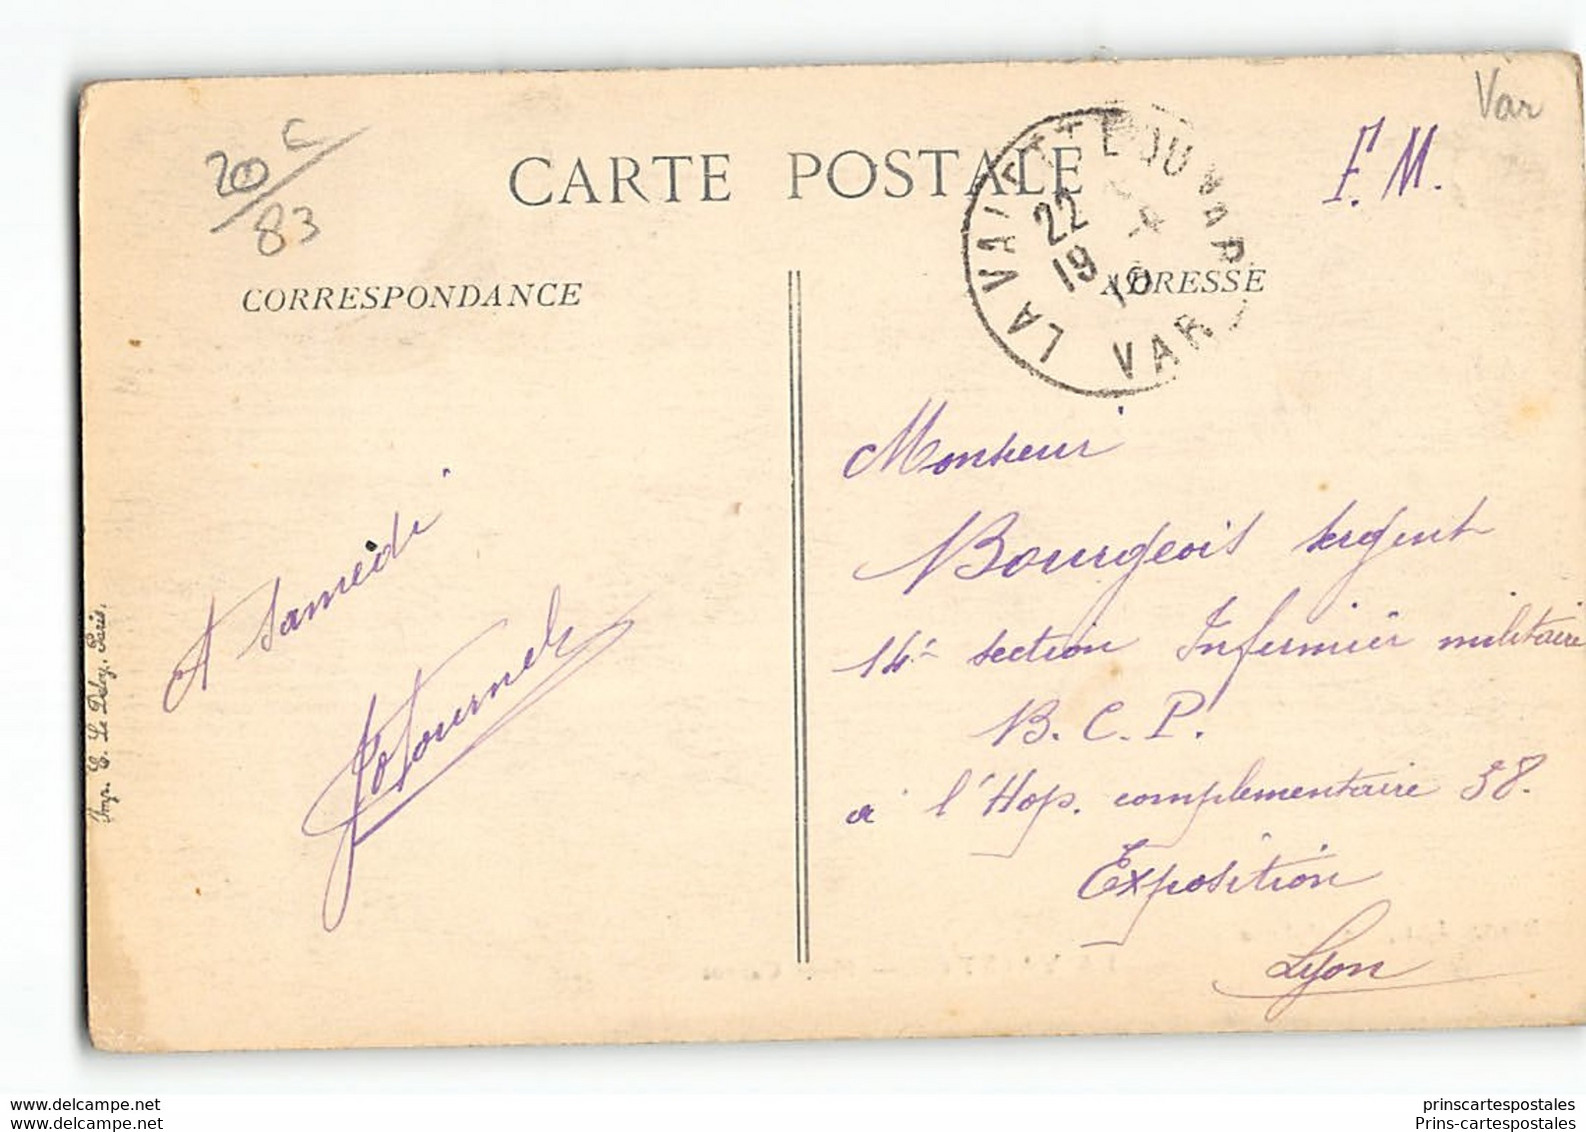 Var
20 c
83
CARTE POSTALE
F. M.
LA VALETTE DU VAR
22
19
VAR
CORRESPONDANCE
ADRESSE
Monsieur
Bourgeois sergent
14e section Infirmier militaire
B. C. P.
a l'Hop. complementaire 38.
Exposition
Lyon
A Samedi
Imp. E. Le Deley, Paris.
delcampe.net
prinscartespostales
Prins-cartespostales